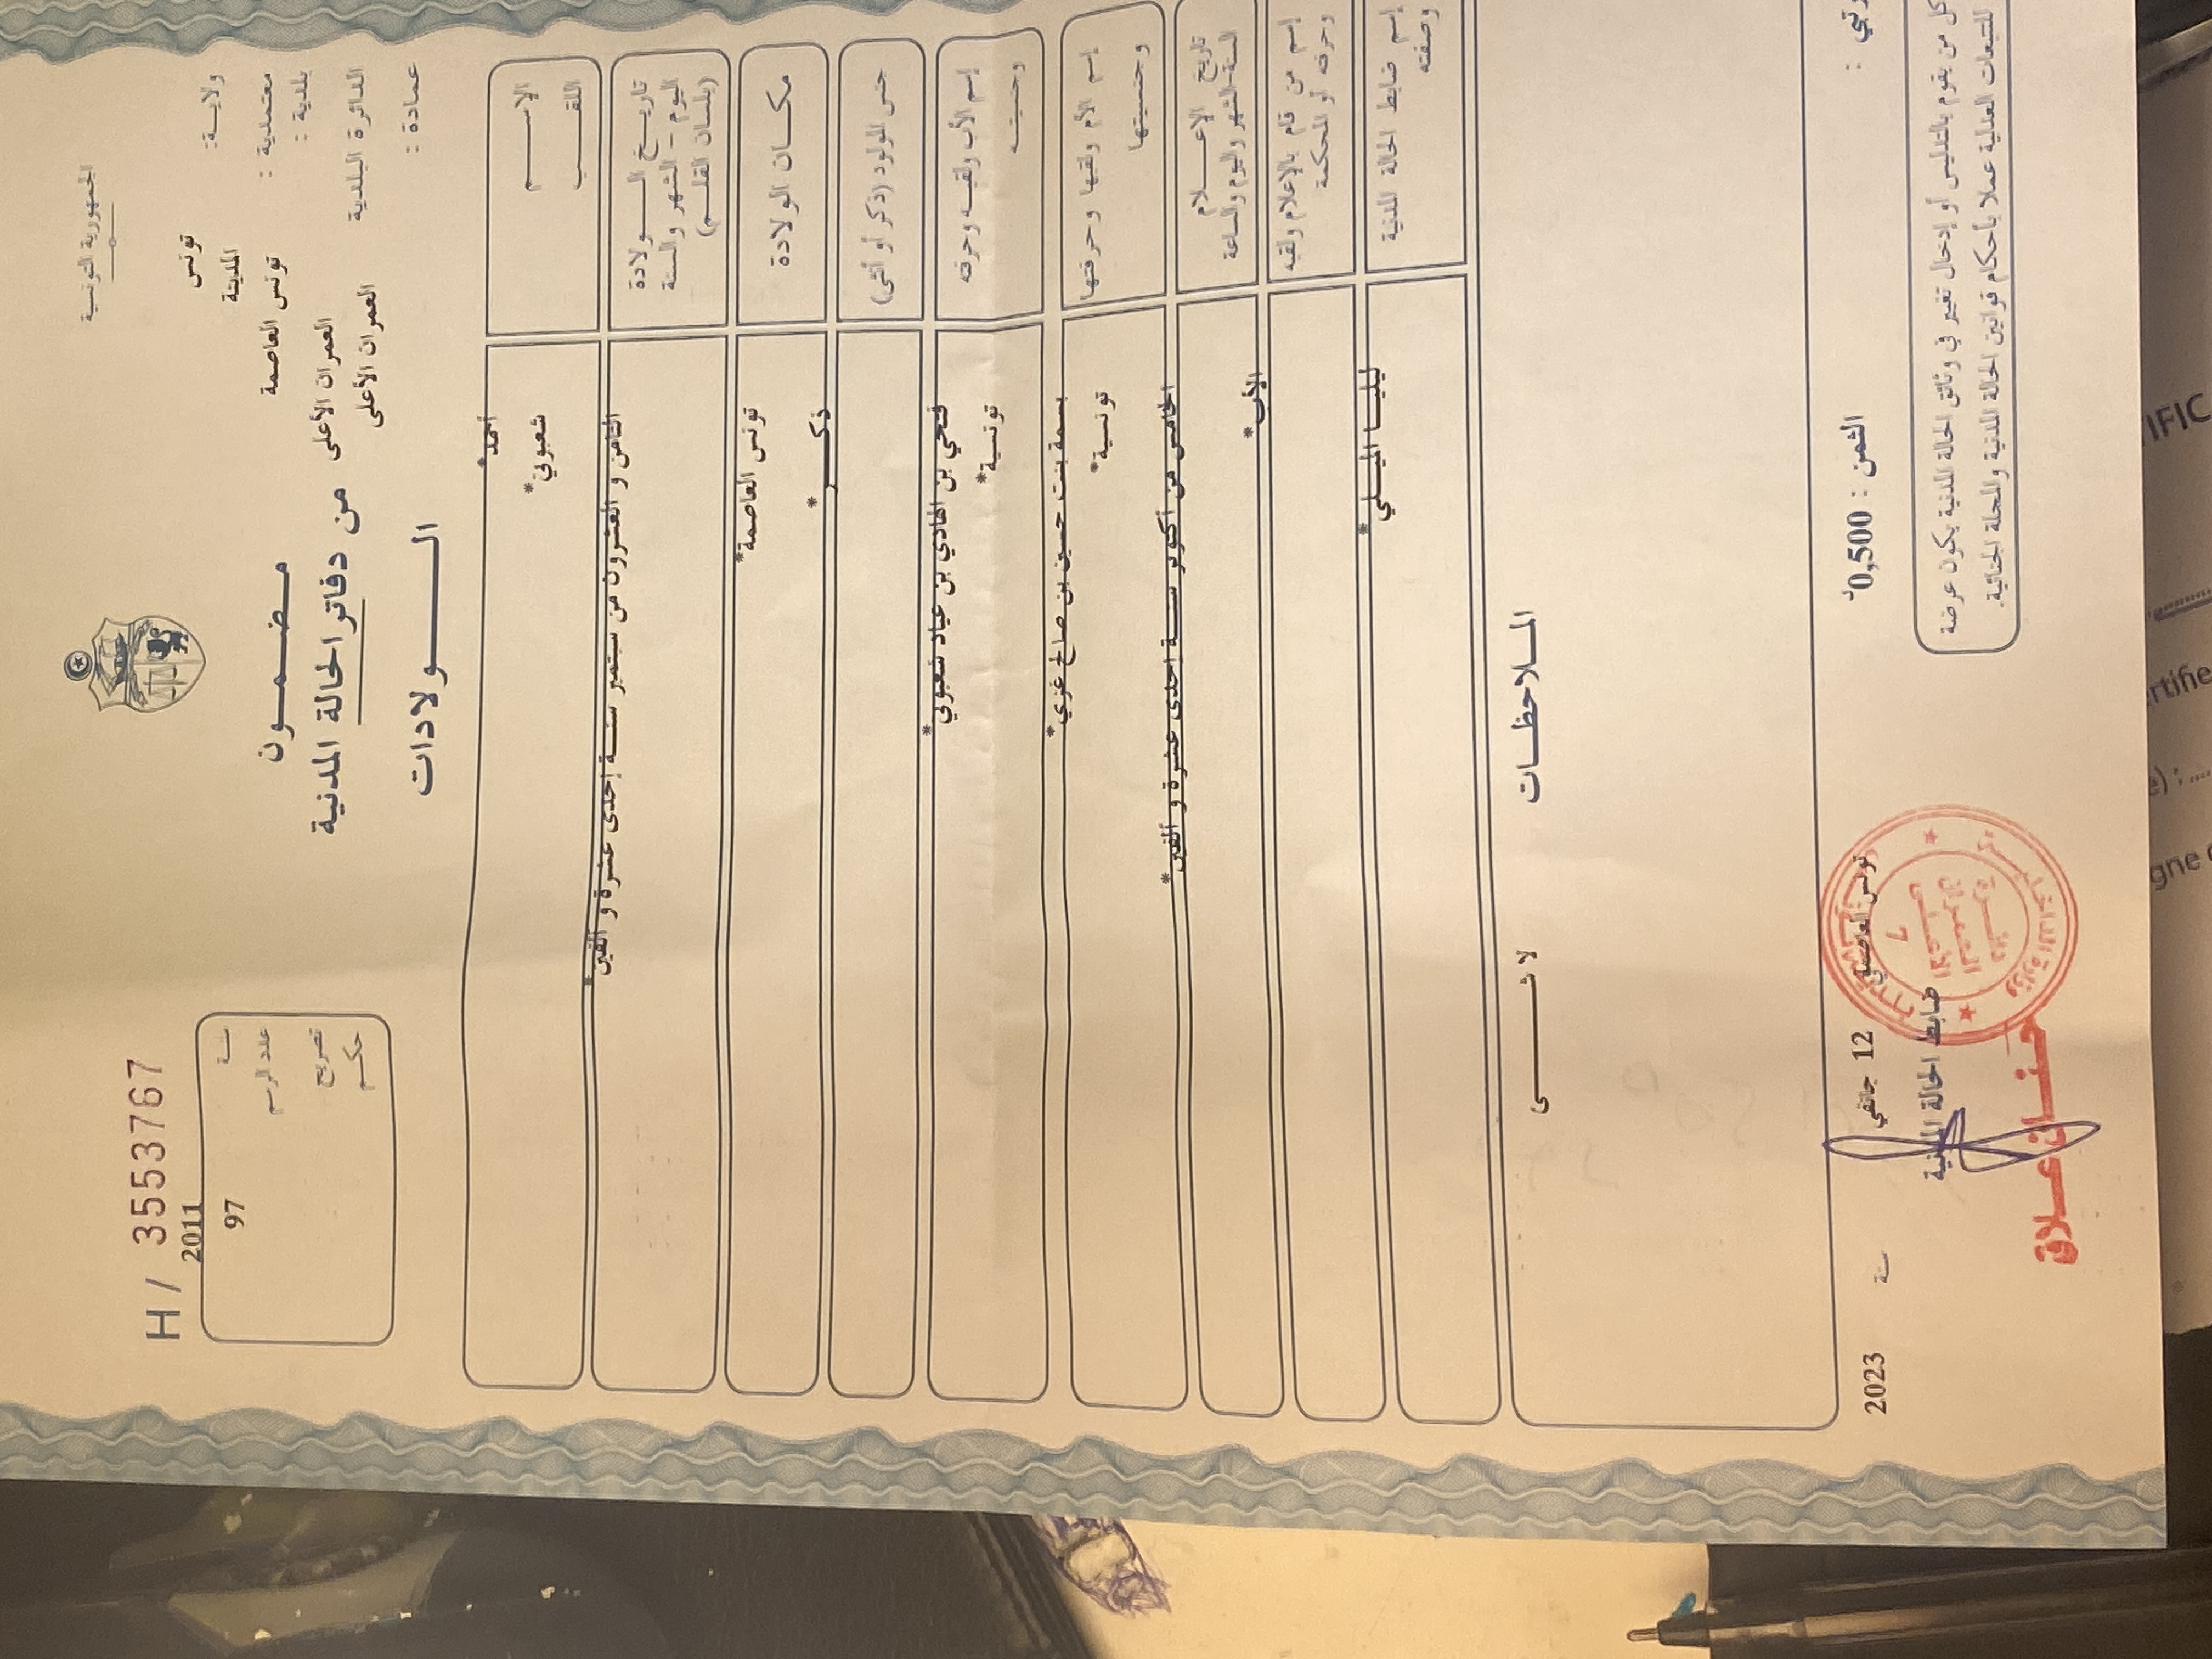 الجمهورية التونسية
H / 3553767
ولايـة: تونس
معتمدية : المدينة
بلدية : تونس العاصمة
الدائرة البلدية العمران الأعلى
عمادة : العمران الأعلى
مـضـمــون
من دفاتر الحالة المدنية
الـــولادات
2011 سنة
عدد الرسم 97
تصريح
حكـم
الإســـم أحمد*
اللقـــب شعبوني*
تاريــخ الـــولادة
اليوم - الشهر والسنة
(بلسان القلـــم)
الثامن و العشرون من سبتمبر سنـة إحدى عشرة و ألفين*
مكــان الولادة تونس العاصمة*
جنس المولود (ذكر أو أنثى) ذكــر*
إسم الأب ولقبـه وحرفته فتحي بن الهادي بن عياد شعبوني*
وجنسيتـه تونسية*
إسم الأم ولقبها وحرفتها بسمة بنت حسين بن صالح غزي*
وجنسيتها تونسية*
تاريخ الإعــلام
السنة-الشهر واليوم والساعة
الخامس من أكتوبر سنـة إحدى عشرة و ألفين*
إسم من قام بالإعلام ولقبه
وحرفته أو المحكمة
الأب*
إسم ضابط الحالة المدنية
وصفته
ليليـا الميـلي*
المـلاحظـات
لا شـــــئ
الثمن : 0,500د
تونس العاصمة 12 جانفي سنة 2023
ضابط الحالة المدنية
حنـان عـلاق
وزارة الداخلية
دائـرة
العمـران
الأعلـى
7
كل من يقوم بالتدليس أو إدخال تغيير في وثائق الحالة المدنية يكون عرضة
للتبعات العدلية عملا بأحكام قوانين الحالة المدنية والمجلة الجنائية.
TIFIC
ertifie
e) :
gne